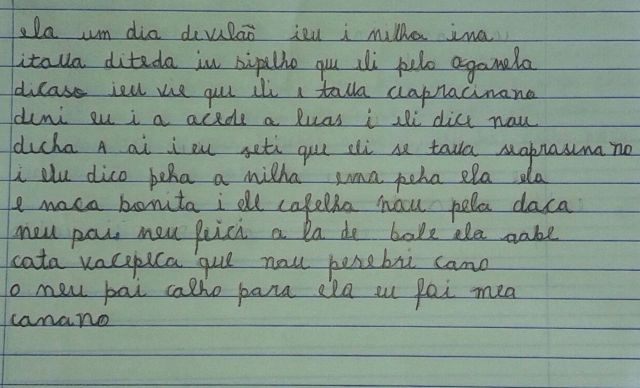 ela um dia devilaõ ieu i milha ima
itaua diteda iu sipilho qui ili pelo aganela
dicaso ieu vie que ili e taua ciapracinano
deni eu i a acede a luas i ili dice nau
decha A ai i eu seti que ili se taua siaprasina no
i elu dico peha a milha ema peha ela ela
e naca bonita i ele cafelha nau pela daca
meu pai neu feici a la de bale ela aabe
cata vacepeca que nau perebri cano
o meu pai calho para ela eu foi mea
canano